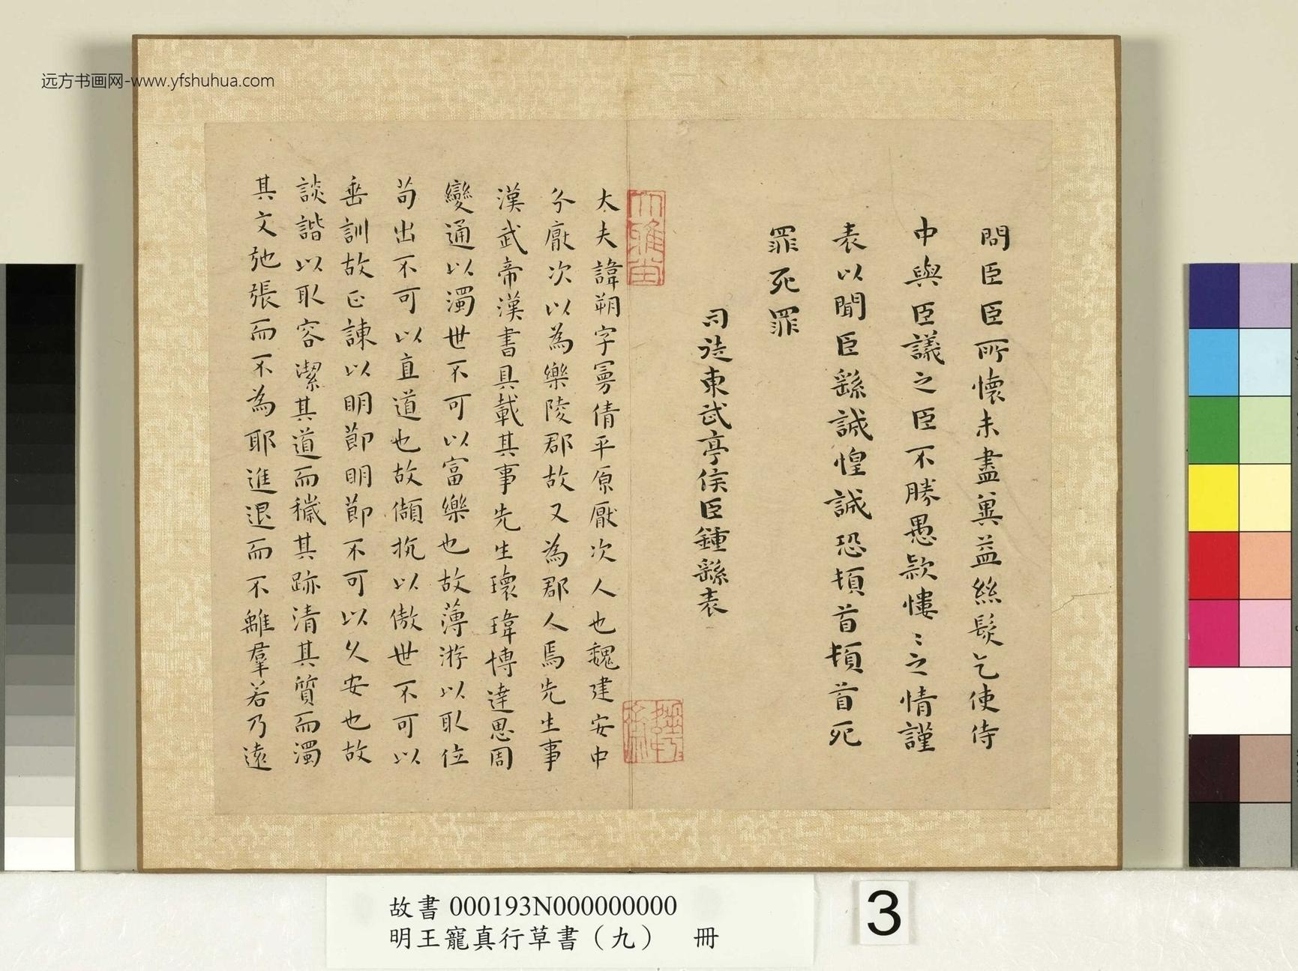 远方书画网-www.yfshuhua.com
問臣臣所懷未盡冀益絲髮乞使侍
中與臣議之臣不勝愚款慺〻之情謹
表以聞臣繇誠惶誠恐頓首頓首死
罪死罪
司徒東武亭侯臣鍾繇表
大雅堂
大夫諱朔字曼倩平原厭次人也魏建安中
分厭次以為樂陵郡故又為郡人焉先生事
漢武帝漢書具載其事先生瓌瑋博達思周
變通以濁世不可以富樂也故薄游以取位
苟出不可以直道也故傾抗以傲世不可以
垂訓故正諫以明節明節不可以久安也故
談諧以取容潔其道而穢其跡清其質而濁
其文弛張而不為耶進退而不離羣若乃遠
故書000193N000000000
明王寵真行草書（九） 冊
3